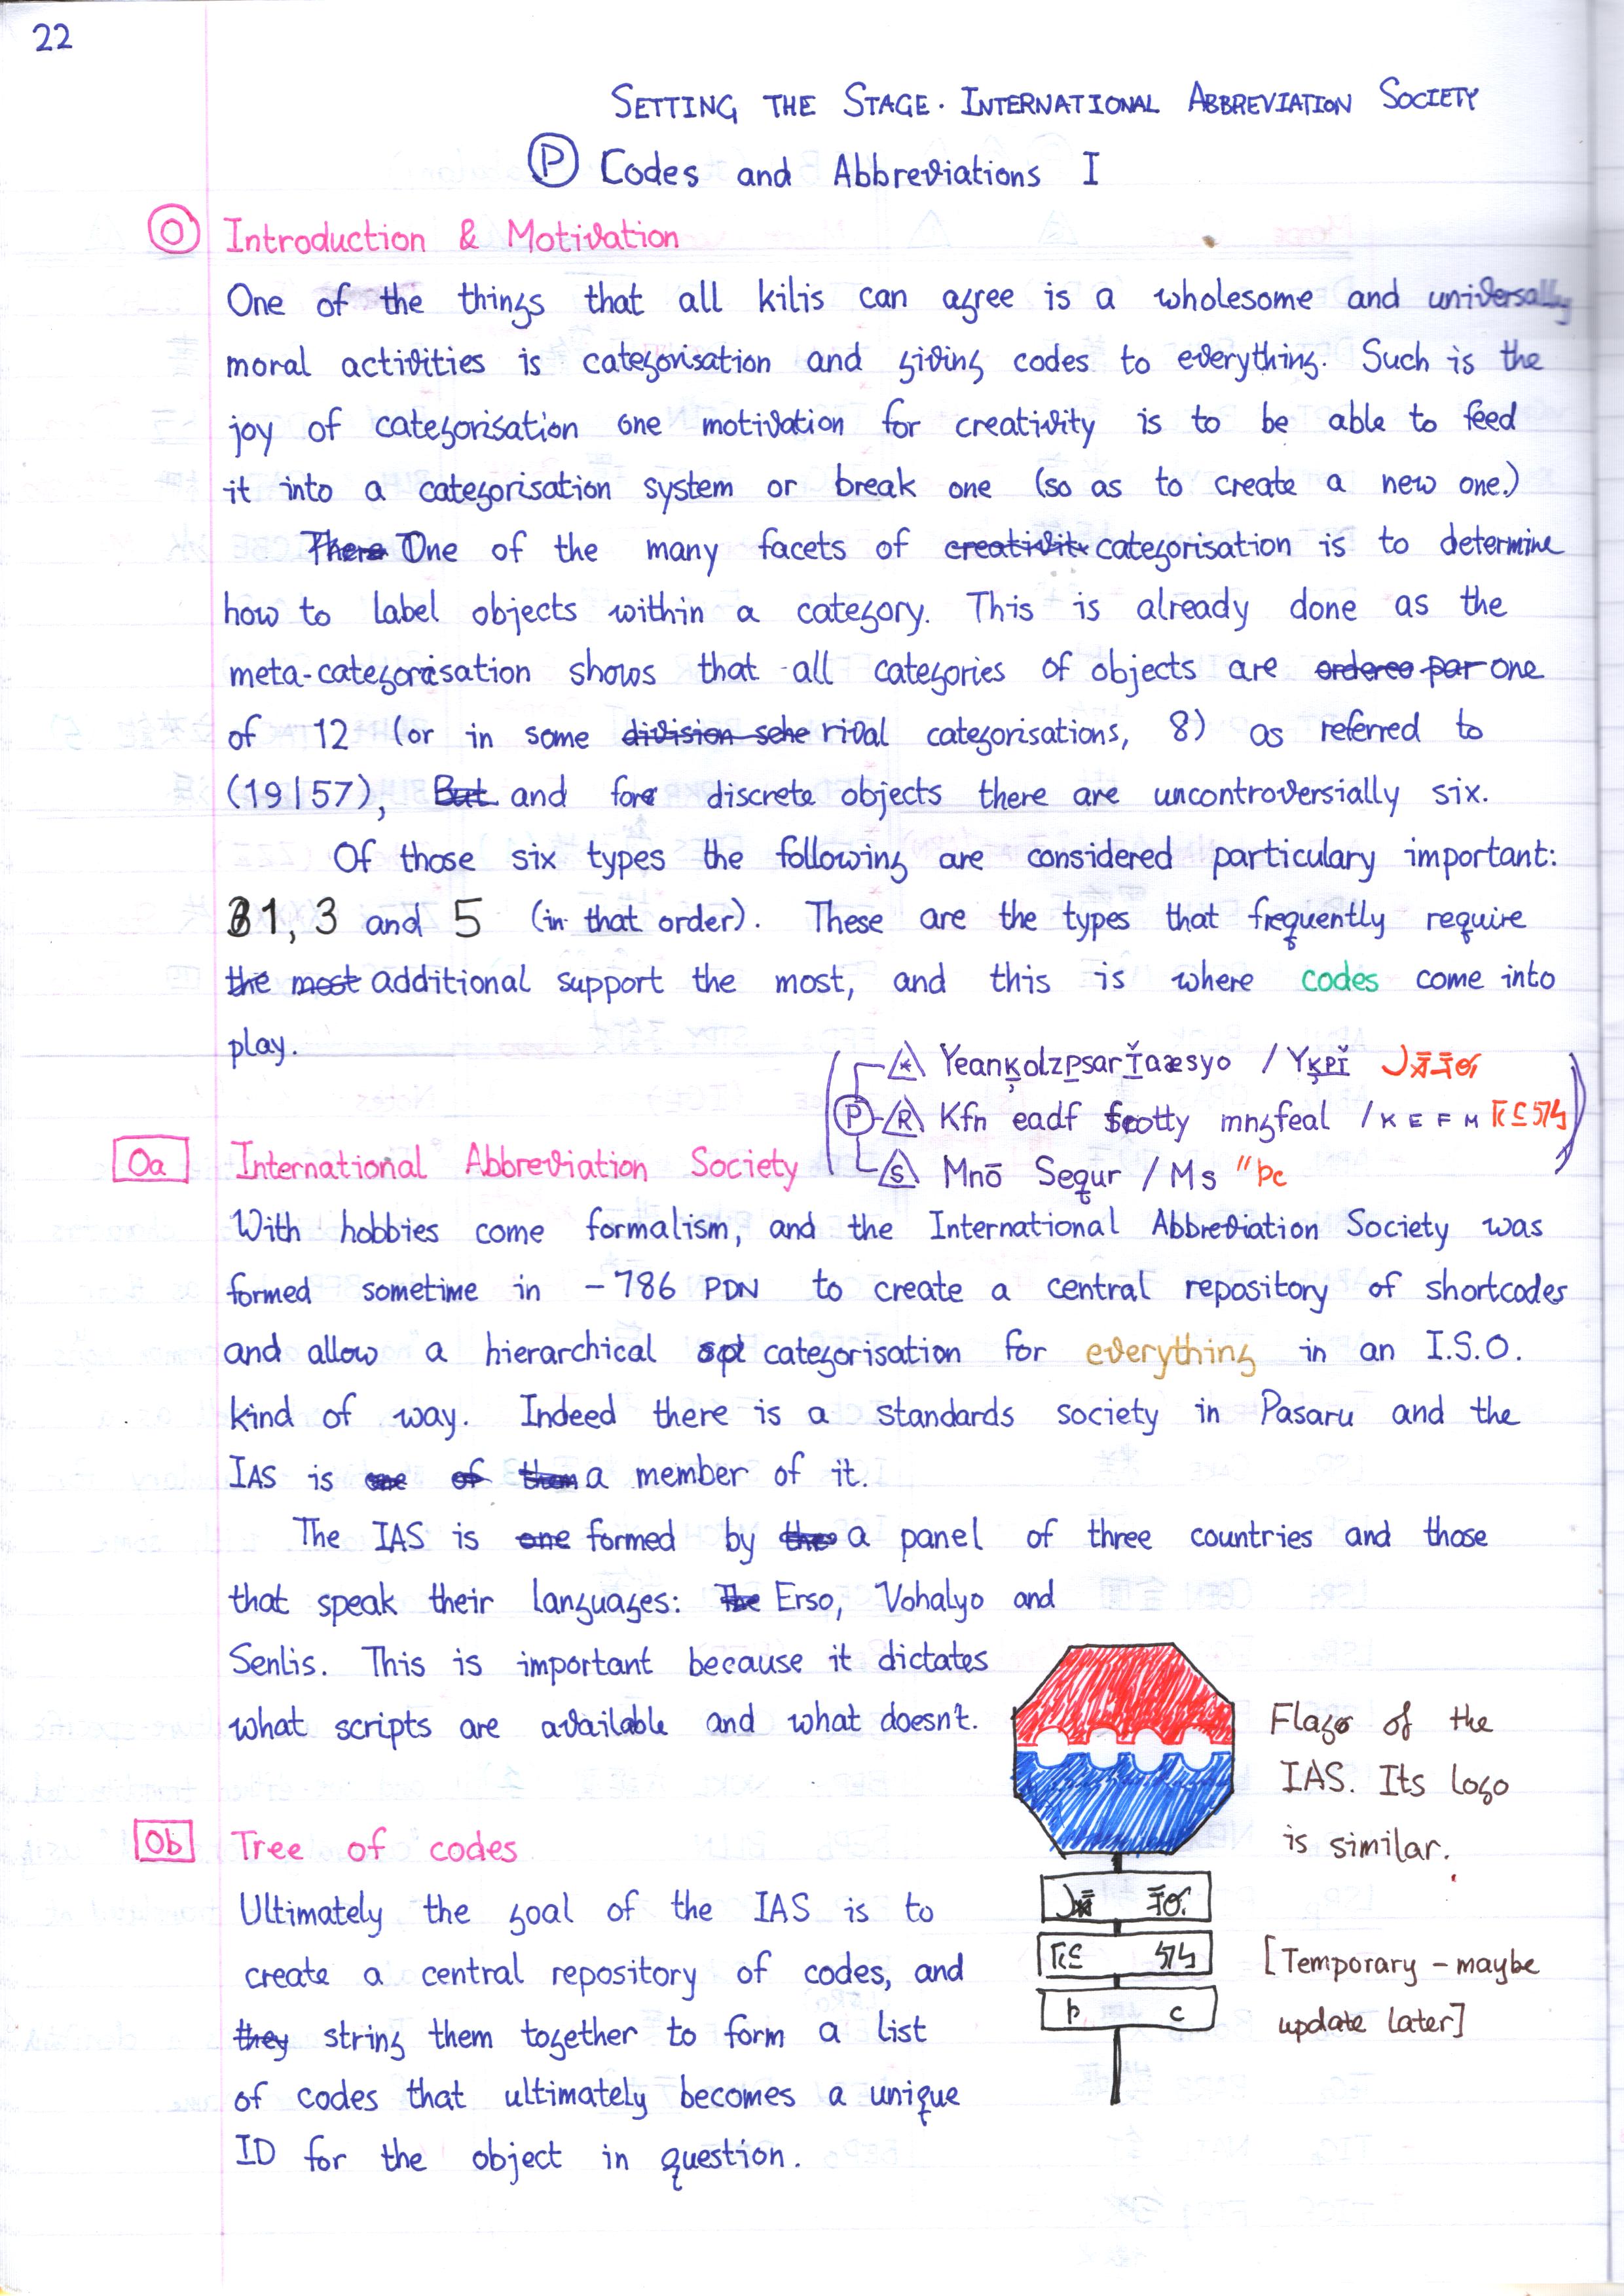 22
SETTING THE STAGE · INTERNATIONAL ABBREVIATION SOCIETY
Ⓟ Codes and Abbreviations I
⓪ Introduction & Motivation
One of the things that all kilis can agree is a wholesome and universally
moral activities is categorisation and giving codes to everything. Such is the
joy of categorisation one motivation for creativity is to be able to feed
it into a categorisation system or break one (so as to create a new one.)
There One of the many facets of creativity categorisation is to determine
how to label objects within a category. This is already done as the
meta-categorisation shows that all categories of objects are ordered par one
of 12 (or in some division sche rival categorisations, 8) as referred to
(19|57), But and for discrete objects there are uncontroversially six.
Of those six types the following are considered particulary important:
1, 3 and 5 (in that order). These are the types that frequently require
the most additional support the most, and this is where codes come into
play.
Yeanķolzp̱sarǏaæsyo / Yķp̱ǐ
P R Kfn eadf scotty mngfeal / K E F M
S Mnō Sequr / Ms "þc
0a International Abbreviation Society
With hobbies come formalism, and the International Abbreviation Society was
formed sometime in -786 PDN to create a central repository of shortcodes
and allow a hierarchical spl categorisation for everything in an I.S.O.
kind of way. Indeed there is a standards society in Pasaru and the
IAS is one of them a member of it.
The IAS is one formed by the a panel of three countries and those
that speak their languages: The Erso, Vohalyo and
Senlis. This is important because it dictates
what scripts are available and what doesn't.
Flag of the
IAS. Its logo
is similar.
0b Tree of codes
Ultimately the goal of the IAS is to
create a central repository of codes, and
they string them together to form a list
of codes that ultimately becomes a unique
ID for the object in question.
þ c
[Temporary – maybe
update later]